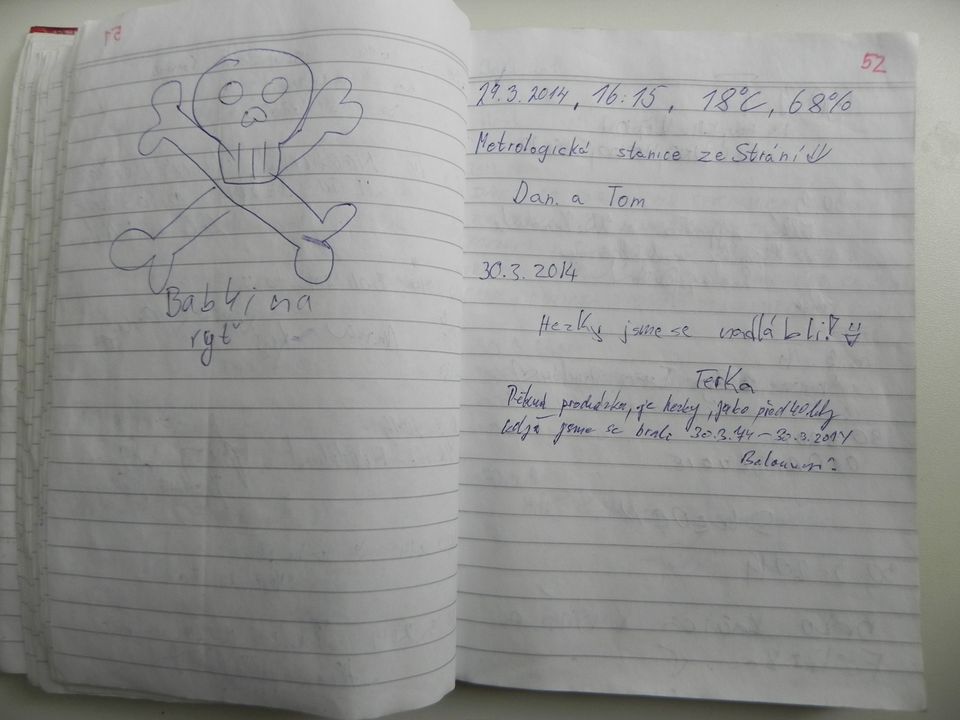 51
Babki na
ryť
52
29.3.2014, 16:15, 18°C, 68%
Metrologická stanice ze Strání
Dan. a Tom
30.3.2014
Hezky jsme se nadlábli!
Terka
Pěkná procházka, je hezky, jako před 40 lety
když jsme se brali 30.3.74 – 30.3.2014